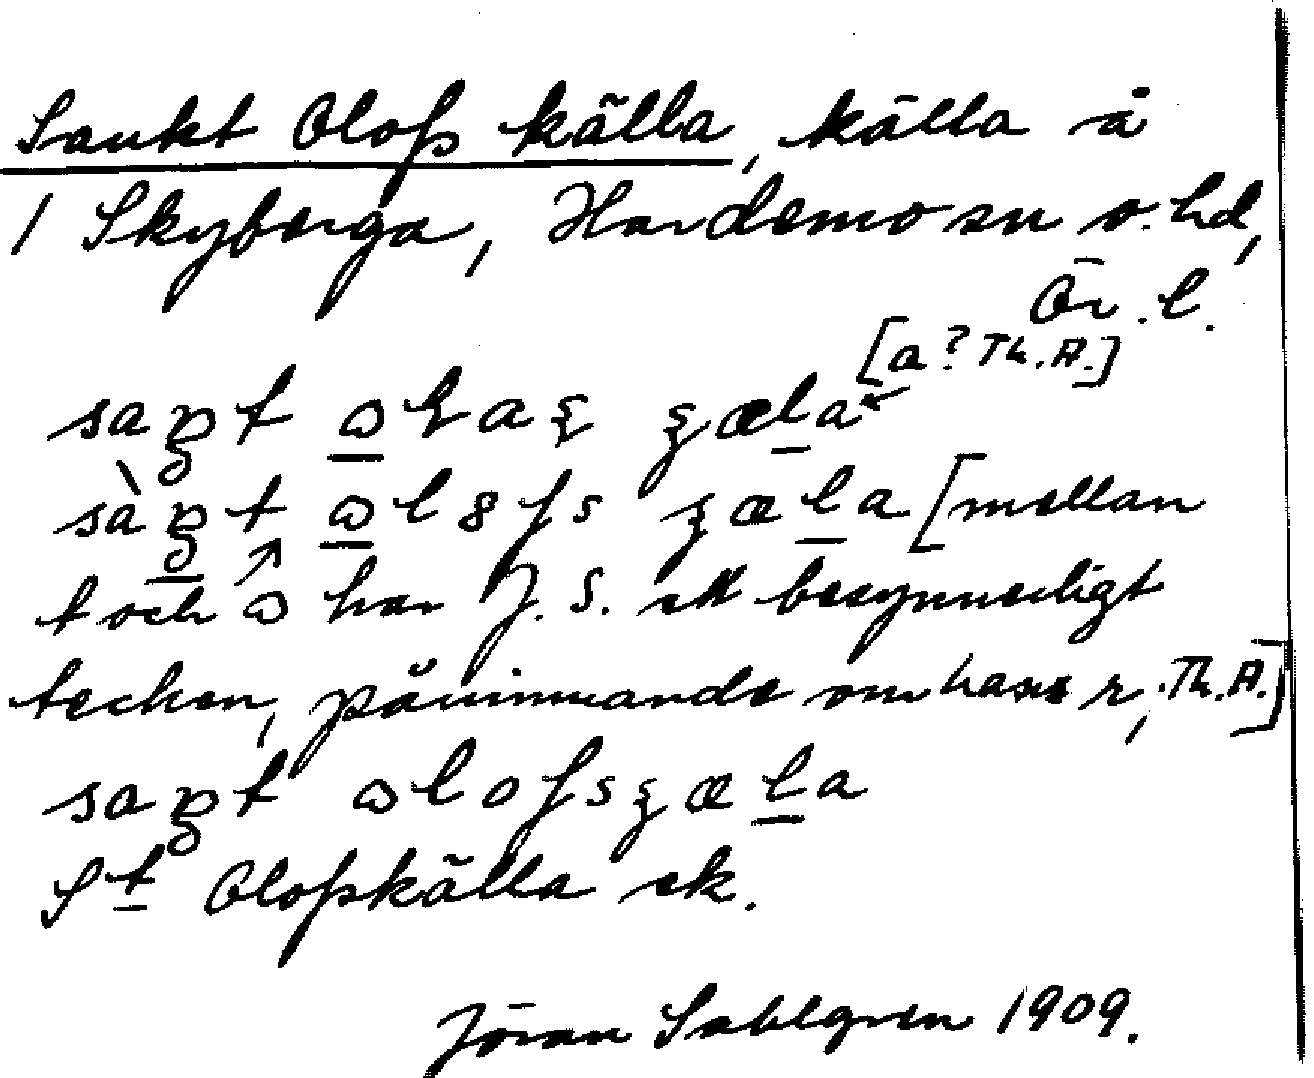 Sankt Olofs källa, källa å
1 Skyberga, Hardemo sn o. hd,
Ör. l.
[a? Th. A.]
saŋt ɷɽaʂ ʂæla
sàŋt ɷl8fs ʂæla [mellan
t och ɷ har J. S. ett besynnerligt
tecken, påminnande om hans r, Th. A.]
saŋt ɷlofsʂæla
St Olofskälla ek.
Jöran Sahlgren 1909.